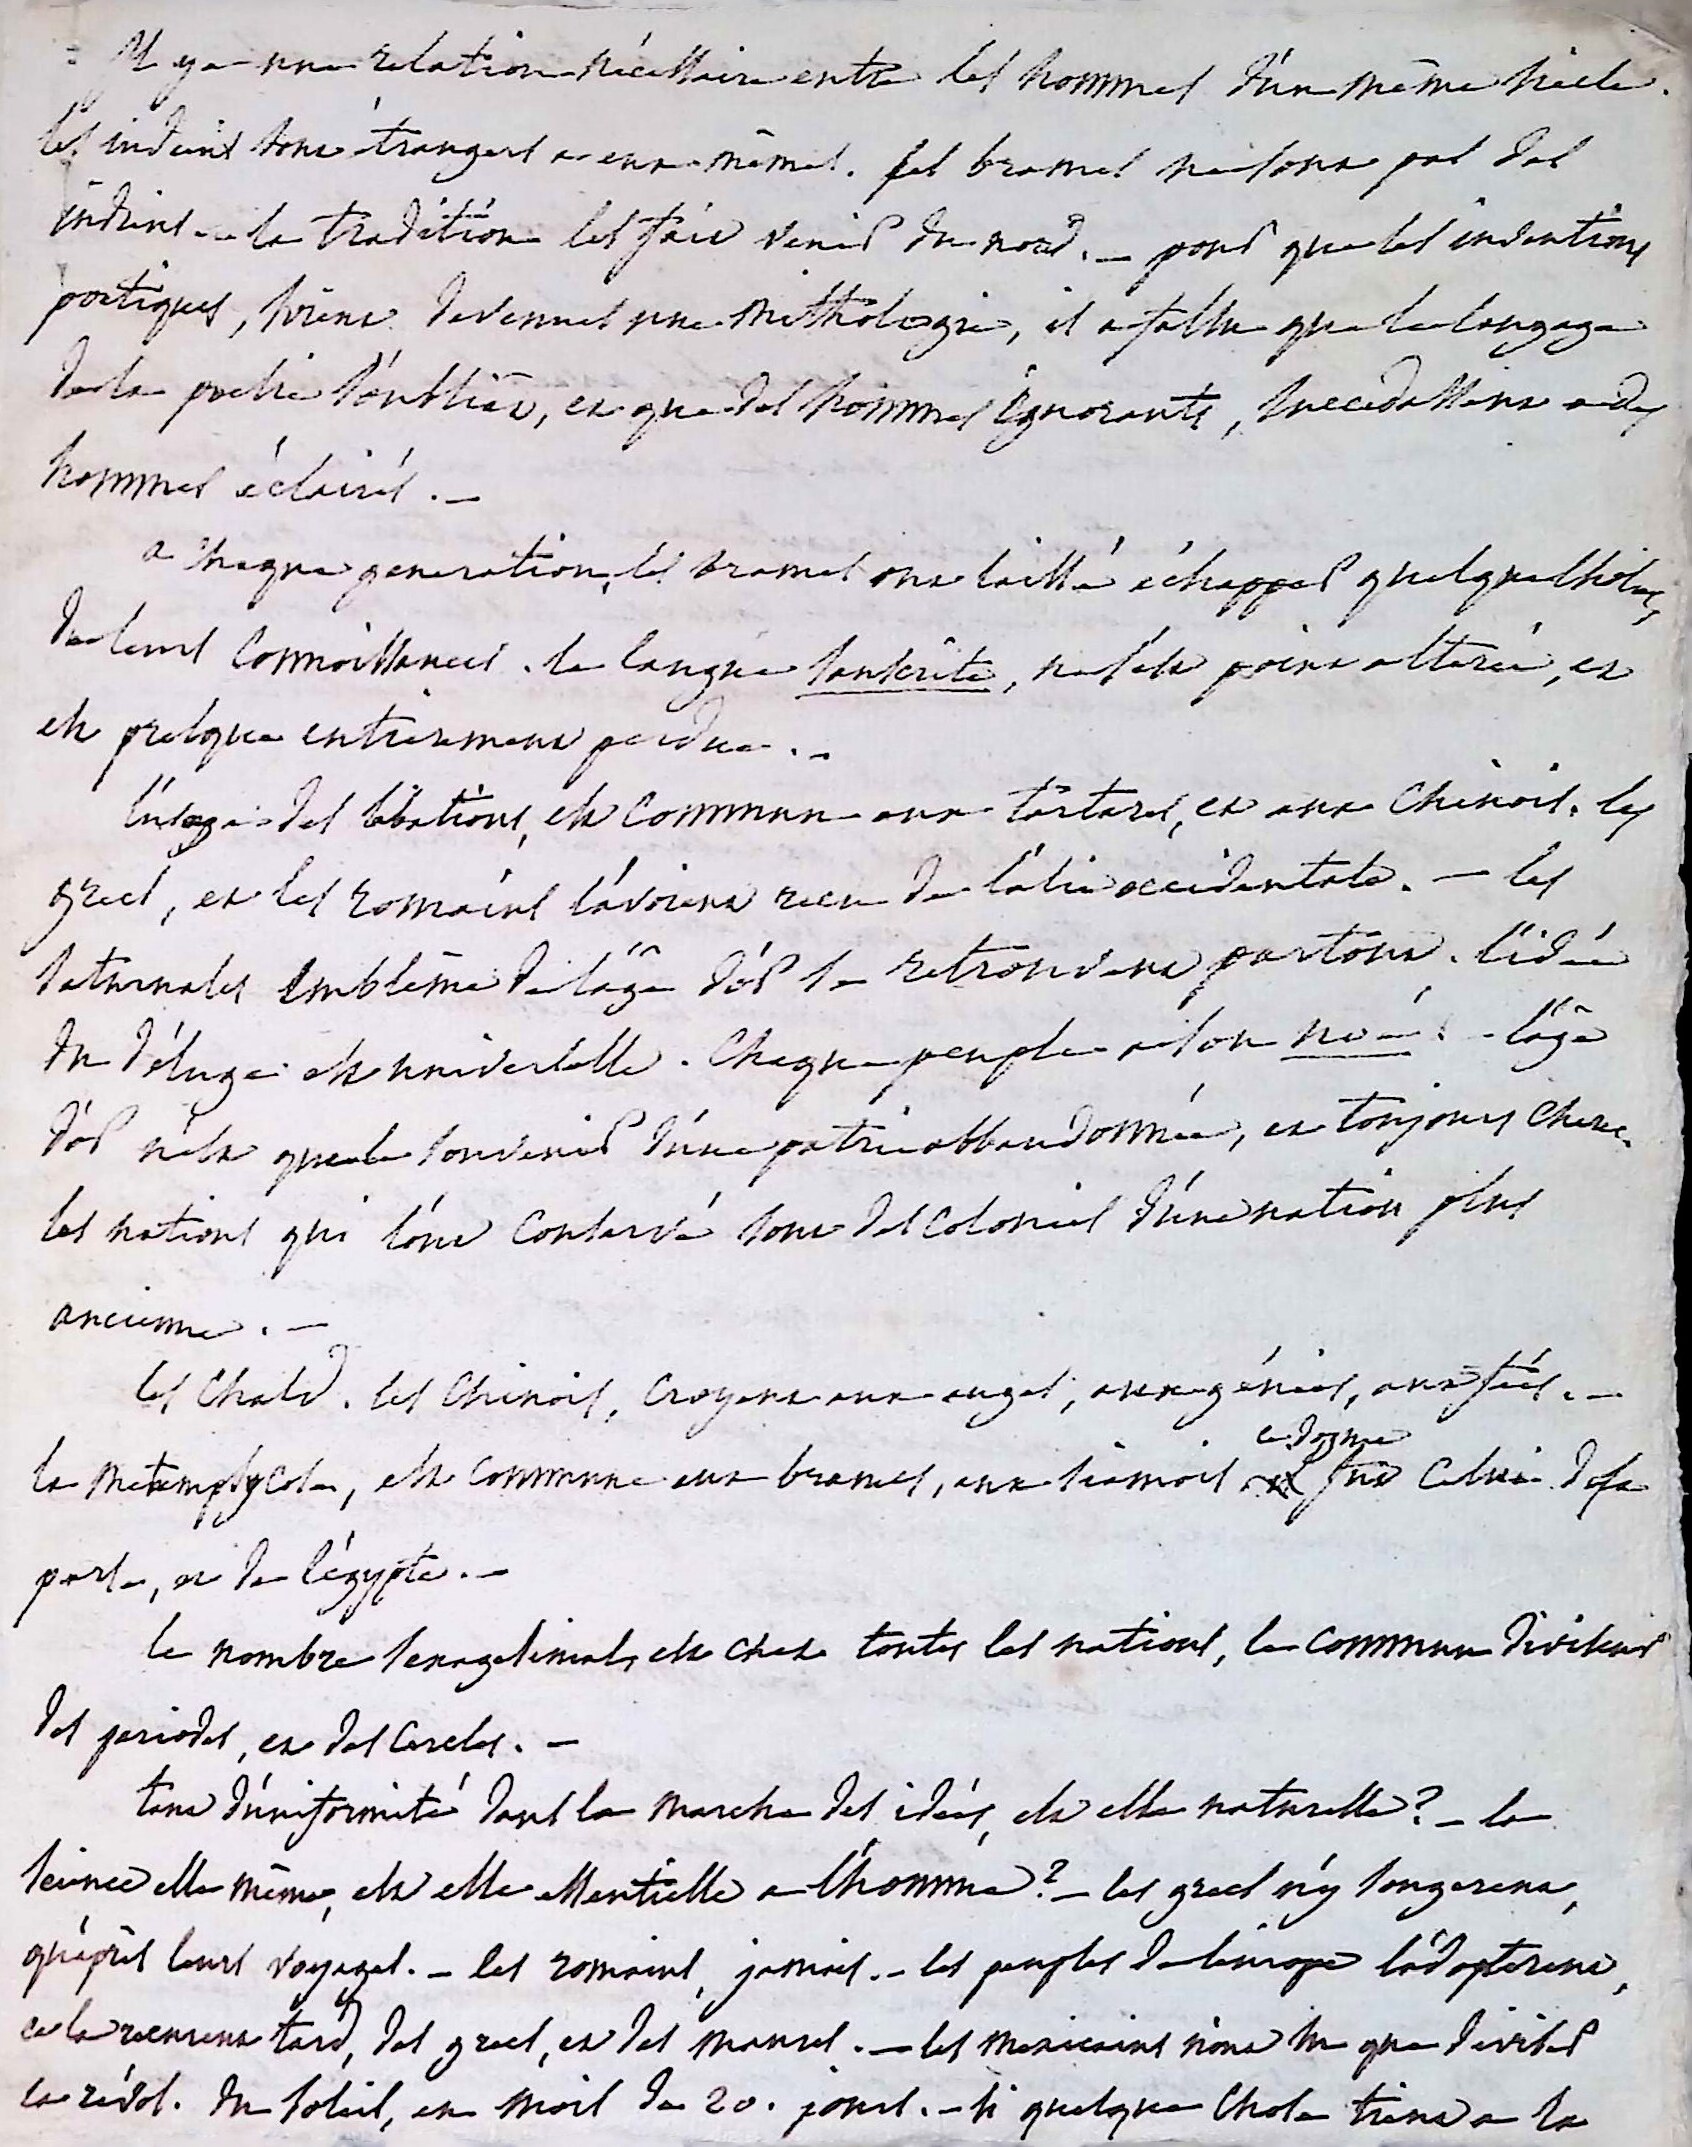 Il y a une relation nécessaire entre les hommes d'un même siècle.
les indiens sont étrangers a eux mêmes. les brames ne sont pas des
indiens. la tradition les fait venir du nord. — pour que les inventions
poetiques, soient devenues une mithologie, il a fallu que le langage
de la poesie s'oubliât, et que des hommes ignorants, succedassent a des
hommes éclairés. —
a chaque generation, les brames ont laissé échapper quelque chose,
de leurs connoissances. la langue sanscrite, ne s'est point alterée, et
est presque entierement perdue. —
l'usage des libations, est commun aux tartares, et aux chinois. les
grecs, et les romains l'avoient recu de l'asie occidentale. — les
saturnales emblême de l'âge d'or se retrouvent partout. l'idée
du déluge est universelle. Chaque peuple a son noé. — l'âge
d'or n'est que le souvenir d'une patrie abbandonnée, et toujours chere.
les nations qui l'ont conservé sont des colonies d'une nation plus
ancienne. —
les Chald. les Chinois, croyent aux anges, aux génies, aux fées. —
ce dogme
la metempsycose, est commune aux brames, aux siamois fut celui de la
perse, et de l'égypte. —
le nombre sexagesimal, est chez toutes les nations, le commun diviseur
des periodes, et des cercles. —
tant d'uniformité dans la marche des idées, est elle naturelle? — la
science elle même, est elle essentielle a l'homme? — les grecs n'y songerent,
qu'après leurs voyages. — les romains, jamais. — les peuples de l'europe l'adopterent,
et la recurent tard, des grecs, et des maures. — les mexicains n'ont su que diviser
la révol. du soleil, en mois de 20. jours. — si quelque chose tient a la